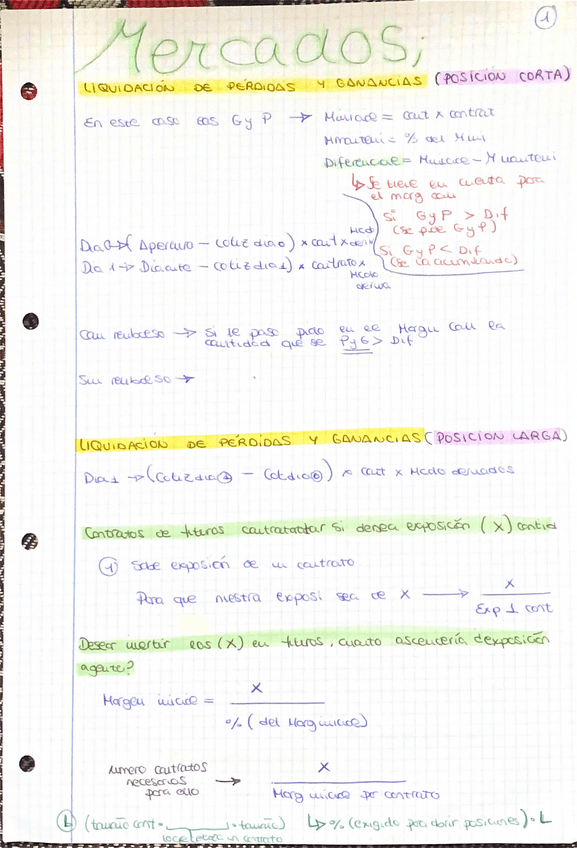 1
Mercados;
LIQUIDACIÓN DE PÉRDIDAS Y GANANCIAS (POSICIÓN CORTA)
En este caso las G y P → M inicial = cant x contrat
M manteni = % del M ini
Diferencial = M inicial - M manteni
↳ Se tiene en cuenta para
el marg call
Si G y P > Dif
(se pide G y P)
Si G y P < Dif
(se va acumulando)
Dia 0 → (Apertura - cotiz dia 0) x cant x
Dia 1 → (Dia ante - cotiz dia 1) x contrato x
Mcdo
deriva
Con reembolso → Si le paso pido en el Margin Call la
cantidad que se PyG > Dif
Sin reembolso →
LIQUIDACIÓN DE PÉRDIDAS Y GANANCIAS (POSICIÓN LARGA)
Dia 1 → (Cotiz dia 1 - Cot dia 0) x cant x Mcdo derivados
Contratos de futuros a contratar si desea exposición (X) cantid
1 Sabe exposión de un contrato
Para que nuestra exposi sea de X → X
Exp 1 cont
Desear invertir los (X) en futuros, cuanto ascendería d exposición
agente?
Margen inicial = X
% (del Marg inicial)
Número contratos
necesarios
para ello
→ X
Marg inicial por contrato
L (tamaño cont · · tamaño) ↳ % (exigido para abrir posiciones) · L